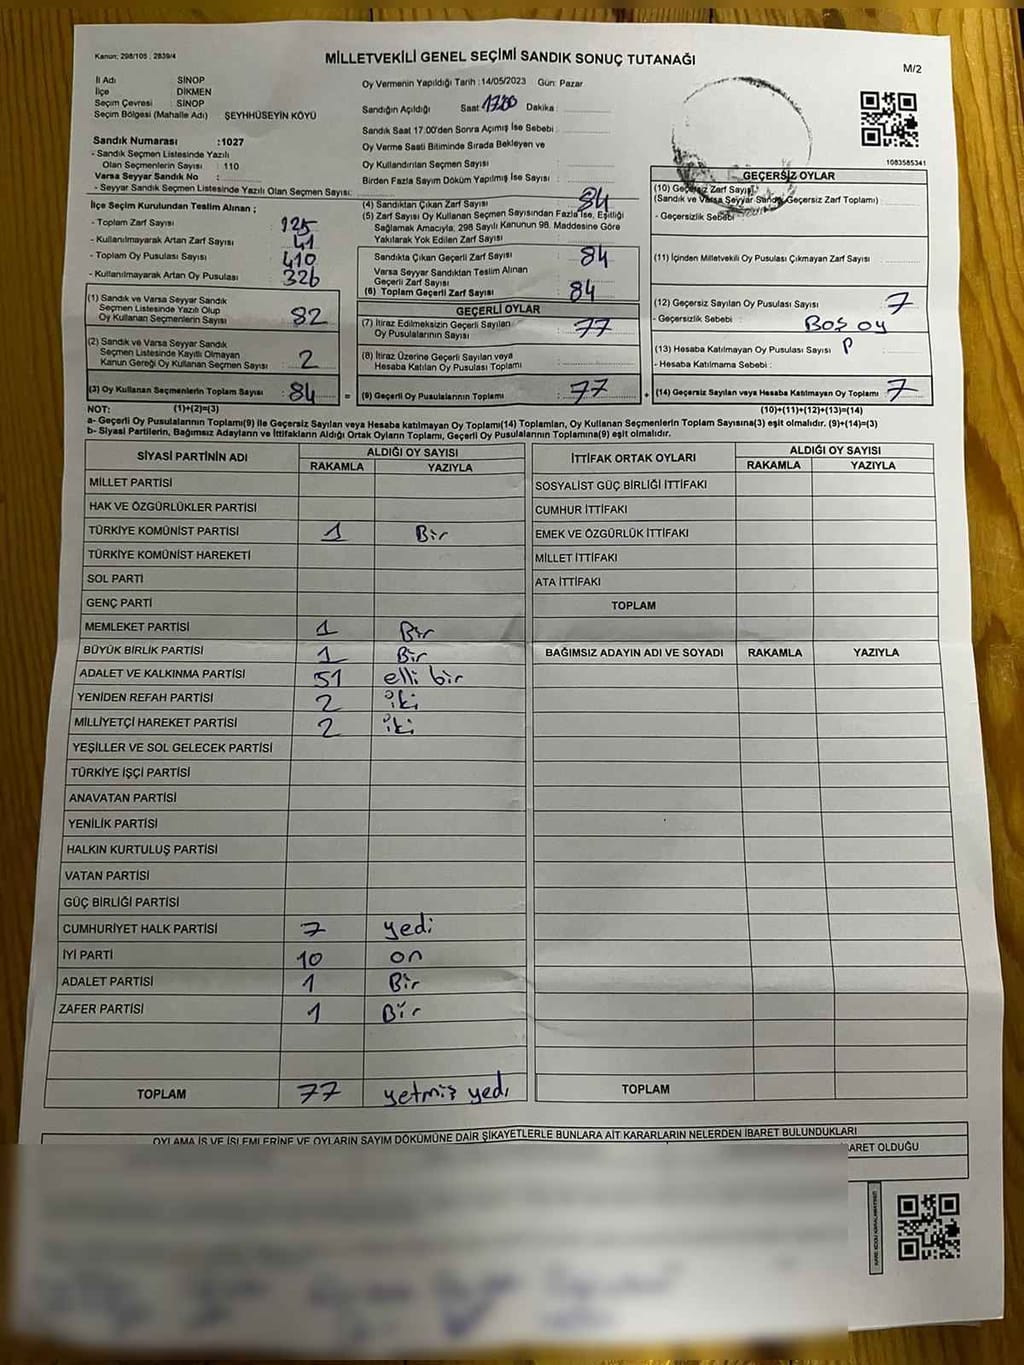 Kanun: 298/105 , 2839/4
MİLLETVEKİLİ GENEL SEÇİMİ SANDIK SONUÇ TUTANAĞI
M/2
İl Adı : SİNOP
İlçe : DİKMEN
Seçim Çevresi : SİNOP
Seçim Bölgesi (Mahalle Adı) ŞEYHHÜSEYİN KÖYÜ
Sandık Numarası :1027
- Sandık Seçmen Listesinde Yazılı
Olan Seçmenlerin Sayısı : 110
Varsa Seyyar Sandık No :
- Seyyar Sandık Seçmen Listesinde Yazılı Olan Seçmen Sayısı:
Oy Vermenin Yapıldığı Tarih : 14/05/2023 Gün: Pazar
Sandığın Açıldığı Saat 17.00 Dakika :
Sandık Saat 17.00'den Sonra Açılmış İse Sebebi :
Oy Verme Saati Bitiminde Sırada Bekleyen ve
Oy Kullandırılan Seçmen Sayısı :
Birden Fazla Sayım Döküm Yapılmış İse Sayısı :
1083585341
İlçe Seçim Kurulundan Teslim Alınan ;
- Toplam Zarf Sayısı : 125
- Kullanılmayarak Artan Zarf Sayısı : 41
- Toplam Oy Pusulası Sayısı : 410
- Kullanılmayarak Artan Oy Pusulası : 326
(1) Sandık ve Varsa Seyyar Sandık
Seçmen Listesinde Yazılı Olup
Oy Kullanan Seçmenlerin Sayısı : 82
(2) Sandık ve Varsa Seyyar Sandık
Seçmen Listesinde Kayıtlı Olmayan
Kanun Gereği Oy Kullanan Seçmen Sayısı : 2
(3) Oy Kullanan Seçmenlerin Toplam Sayısı : 84
(4) Sandıktan Çıkan Zarf Sayısı : 84
(5) Zarf Sayısı Oy Kullanan Seçmen Sayısından Fazla İse, Eşitliği
Sağlamak Amacıyla, 298 Sayılı Kanunun 98. Maddesine Göre
Yakılarak Yok Edilen Zarf Sayısı :
Sandıkta Çıkan Geçerli Zarf Sayısı : 84
Varsa Seyyar Sandıktan Teslim Alınan
Geçerli Zarf Sayısı :
(6) Toplam Geçerli Zarf Sayısı : 84
GEÇERLİ OYLAR
(7) İtiraz Edilmeksizin Geçerli Sayılan
Oy Pusulalarının Sayısı : 77
(8) İtiraz Üzerine Geçerli Sayılan veya
Hesaba Katılan Oy Pusulası Toplamı :
= (9) Geçerli Oy Pusulalarının Toplamı : 77
GEÇERSİZ OYLAR
(10) Geçersiz Zarf Sayısı
(Sandık ve Varsa Seyyar Sandık Geçersiz Zarf Toplamı) :
- Geçersizlik Sebebi :
(11) İçinden Milletvekili Oy Pusulası Çıkmayan Zarf Sayısı :
(12) Geçersiz Sayılan Oy Pusulası Sayısı : 7
- Geçersizlik Sebebi : BOŞ oy
(13) Hesaba Katılmayan Oy Pusulası Sayısı :
- Hesaba Katılmama Sebebi :
+ (14) Geçersiz Sayılan veya Hesaba Katılmayan Oy Toplamı : 7
NOT: (1)+(2)=(3) (10)+(11)+(12)+(13)=(14)
a- Geçerli Oy Pusulalarının Toplamı(9) ile Geçersiz Sayılan veya Hesaba katılmayan Oy Toplamı(14) Toplamları, Oy Kullanan Seçmenlerin Toplam Sayısına(3) eşit olmalıdır. (9)+(14)=(3)
b- Siyasi Partilerin, Bağımsız Adayların ve İttifakların Aldığı Ortak Oyların Toplamı, Geçerli Oy Pusulalarının Toplamına(9) eşit olmalıdır.
SİYASİ PARTİNİN ADI ALDIĞI OY SAYISI
RAKAMLA YAZIYLA
MİLLET PARTİSİ
HAK VE ÖZGÜRLÜKLER PARTİSİ
TÜRKİYE KOMÜNİST PARTİSİ 1 Bir
TÜRKİYE KOMÜNİST HAREKETİ
SOL PARTİ
GENÇ PARTİ
MEMLEKET PARTİSİ 1 Bir
BÜYÜK BİRLİK PARTİSİ 1 Bir
ADALET VE KALKINMA PARTİSİ 51 elli bir
YENİDEN REFAH PARTİSİ 2 iki
MİLLİYETÇİ HAREKET PARTİSİ 2 iki
YEŞİLLER VE SOL GELECEK PARTİSİ
TÜRKİYE İŞÇİ PARTİSİ
ANAVATAN PARTİSİ
YENİLİK PARTİSİ
HALKIN KURTULUŞ PARTİSİ
VATAN PARTİSİ
GÜÇ BİRLİĞİ PARTİSİ
CUMHURİYET HALK PARTİSİ 7 yedi
İYİ PARTİ 10 on
ADALET PARTİSİ 1 Bir
ZAFER PARTİSİ 1 Bir
TOPLAM 77 yetmiş yedi
İTTİFAK ORTAK OYLARI ALDIĞI OY SAYISI
RAKAMLA YAZIYLA
SOSYALİST GÜÇ BİRLİĞİ İTTİFAKI
CUMHUR İTTİFAKI
EMEK VE ÖZGÜRLÜK İTTİFAKI
MİLLET İTTİFAKI
ATA İTTİFAKI
TOPLAM
BAĞIMSIZ ADAYIN ADI VE SOYADI RAKAMLA YAZIYLA
TOPLAM
OYLAMA İŞ VE İŞLEMLERİNE VE OYLARIN SAYIM DÖKÜMÜNE DAİR ŞİKAYETLERLE BUNLARA AİT KARARLARIN NELERDEN İBARET BULUNDUKLARI
BARET OLDUĞU